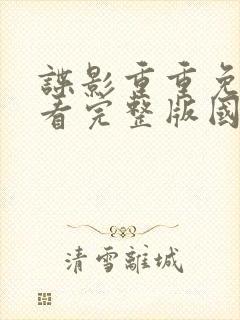 諜影重重免
看完整版國
清雪離城